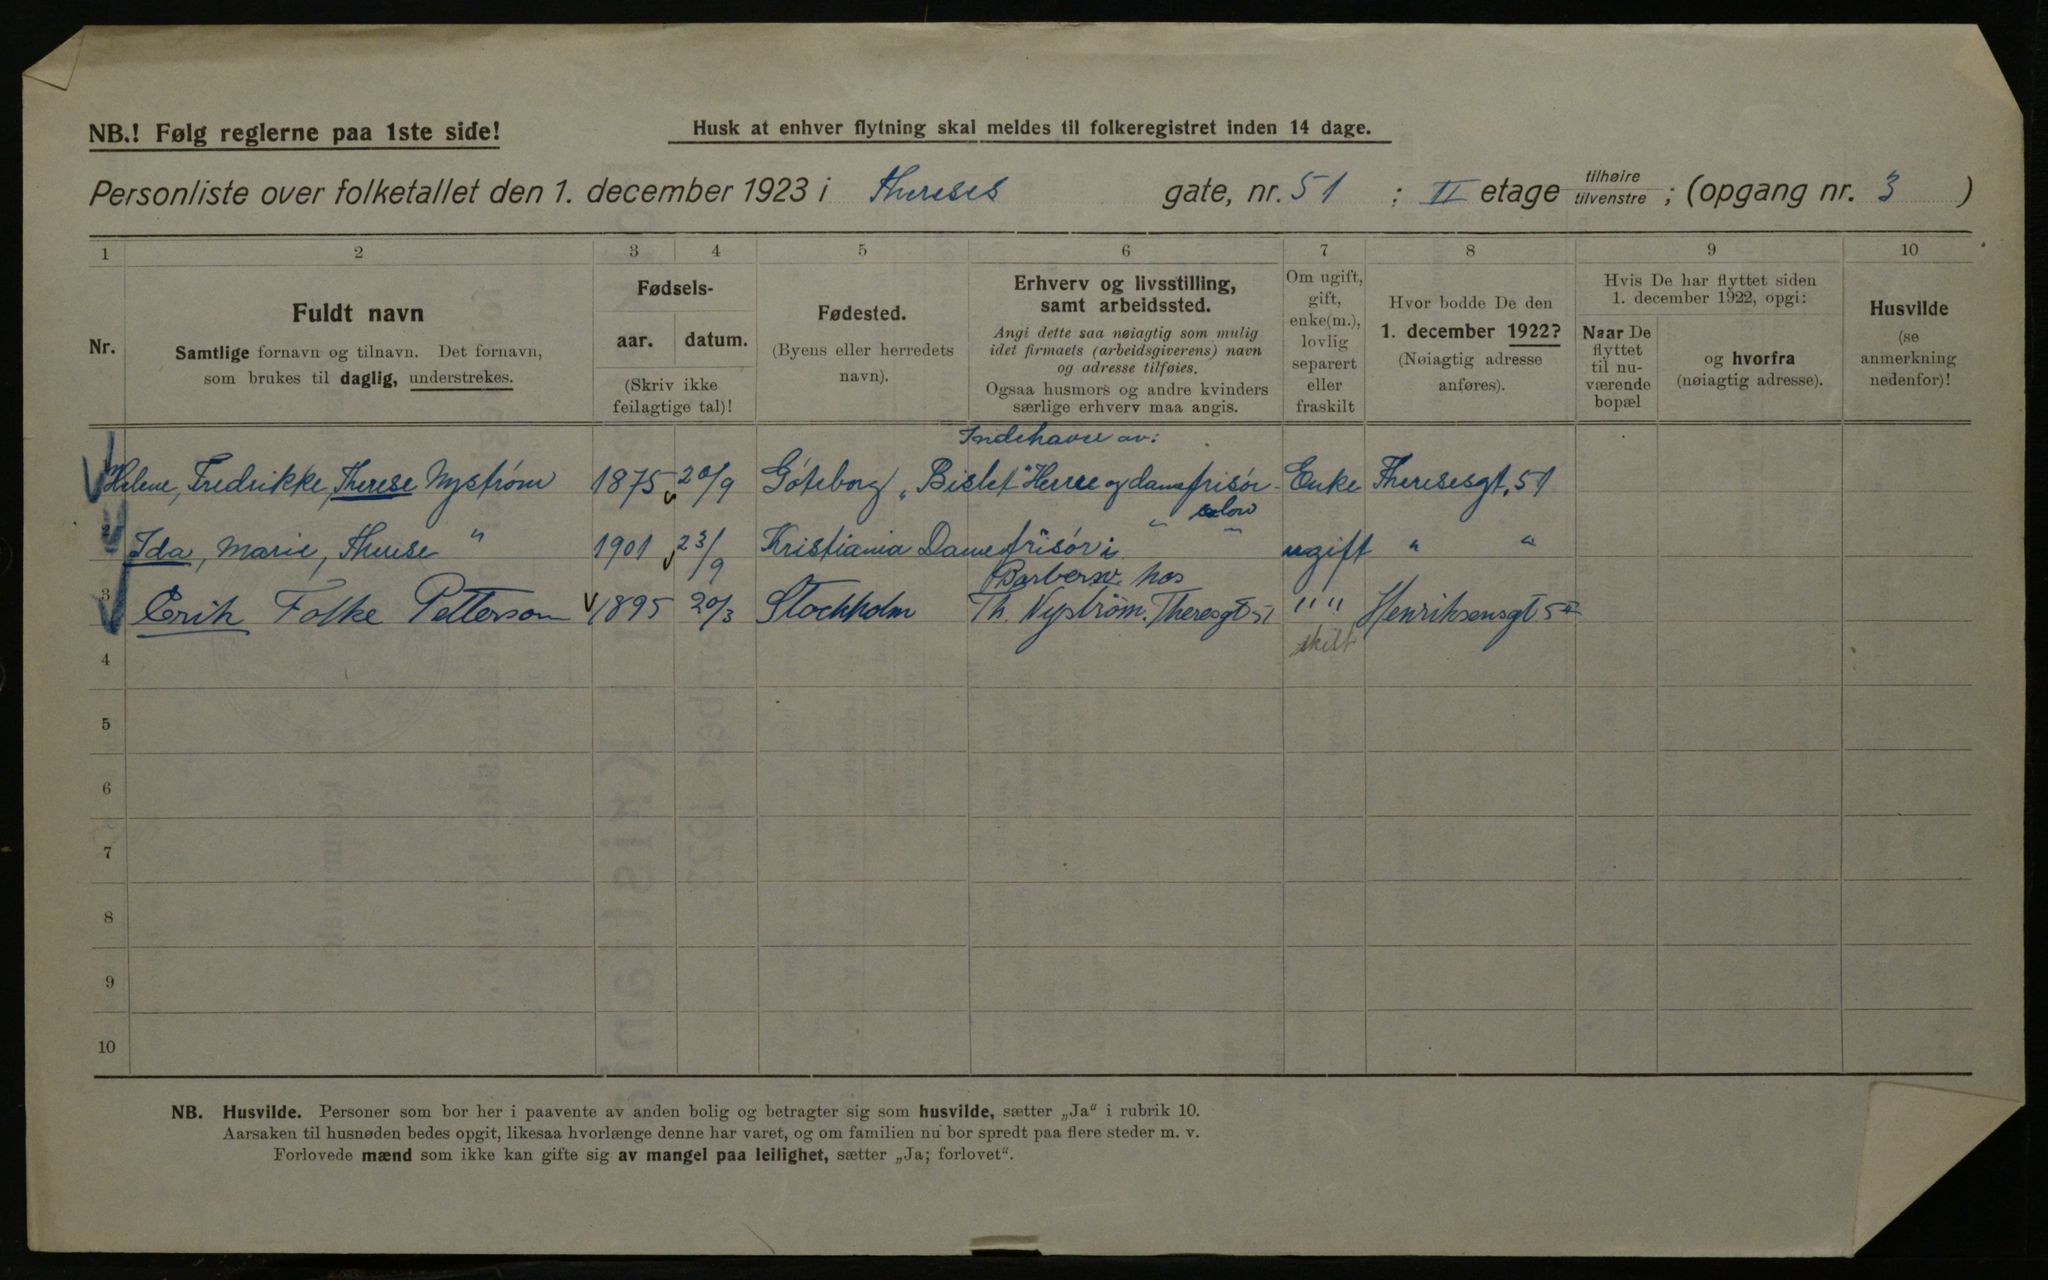 NB.! Følg reglerne paa 1ste side!
Husk at enhver flytning skal meldes til folkeregistret inden 14 dage.
Personliste over folketallet den 1. december 1923 i Thereses gate, nr. 51 ; II etage tilhøire tilvenstre ; (opgang nr. 3 )
1 2 3 4 5 6 7 8 9 10
Nr.
Fuldt navn
Samtlige fornavn og tilnavn. Det fornavn,
som brukes til daglig, understrekes.
Fødsels-
aar. datum.
(Skriv ikke
feilagtige tal)!
Fødested.
(Byens eller herredets
navn).
Erhverv og livsstilling,
samt arbeidssted.
Angi dette saa nøiagtig som mulig
idet firmaets (arbeidsgiverens) navn
og adresse tilføies.
Ogsaa husmors og andre kvinders
særlige erhverv maa angis.
Om ugift,
gift,
enke(m.),
lovlig
separert
eller
fraskilt
Hvor bodde De den
1. december 1922?
(Nøiagtig adresse
anføres).
Hvis De har flyttet siden
1. december 1922, opgi:
Naar De
flyttet
til nu-
værende
bopæl
og hvorfra
(nøiagtig adresse).
Husvilde
(se
anmerkning
nedenfor)!
Indehaver av:
Helene, Fredrikke, Therese Nystrøm 1875 20/9 Göteborg "Bislet" Herre og damefrisør Enke Theresesgt. 51
salon
2 Ida, Marie, Therese " 1901 23/9 Kristiania Damefrisør i " " ugift " "
Barbersv. hos
3 Erik Folke Petterson 1895 20/3 Stockholm Th. Nyström. Theresgt 51 " " Henriksensgt 5
skilt
4
5
6
7
8
9
10
NB. Husvilde. Personer som bor her i paavente av anden bolig og betragter sig som husvilde, sætter „Ja“ i rubrik 10.
Aarsaken til husnøden bedes opgit, likesaa hvorlænge denne har varet, og om familien nu bor spredt paa flere steder m. v.
Forlovede mænd som ikke kan gifte sig av mangel paa leilighet, sætter „Ja; forlovet“.